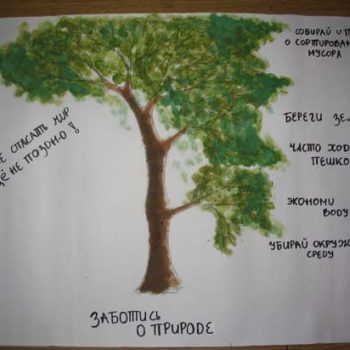 СОБИРАЙ И
О СОРТИРОВАН
МУСОРА
СПАСАТЬ МИР
НЕ ПОЗДНО!
БЕРЕГИ ЗЕ
ЧАСТО ХО
ПЕШКО
ЭКОНОМИ
ВОДУ
УБИРАЙ ОКРУЖ
СРЕДУ
ЗАБОТИСЬ
О ПРИРОДЕ